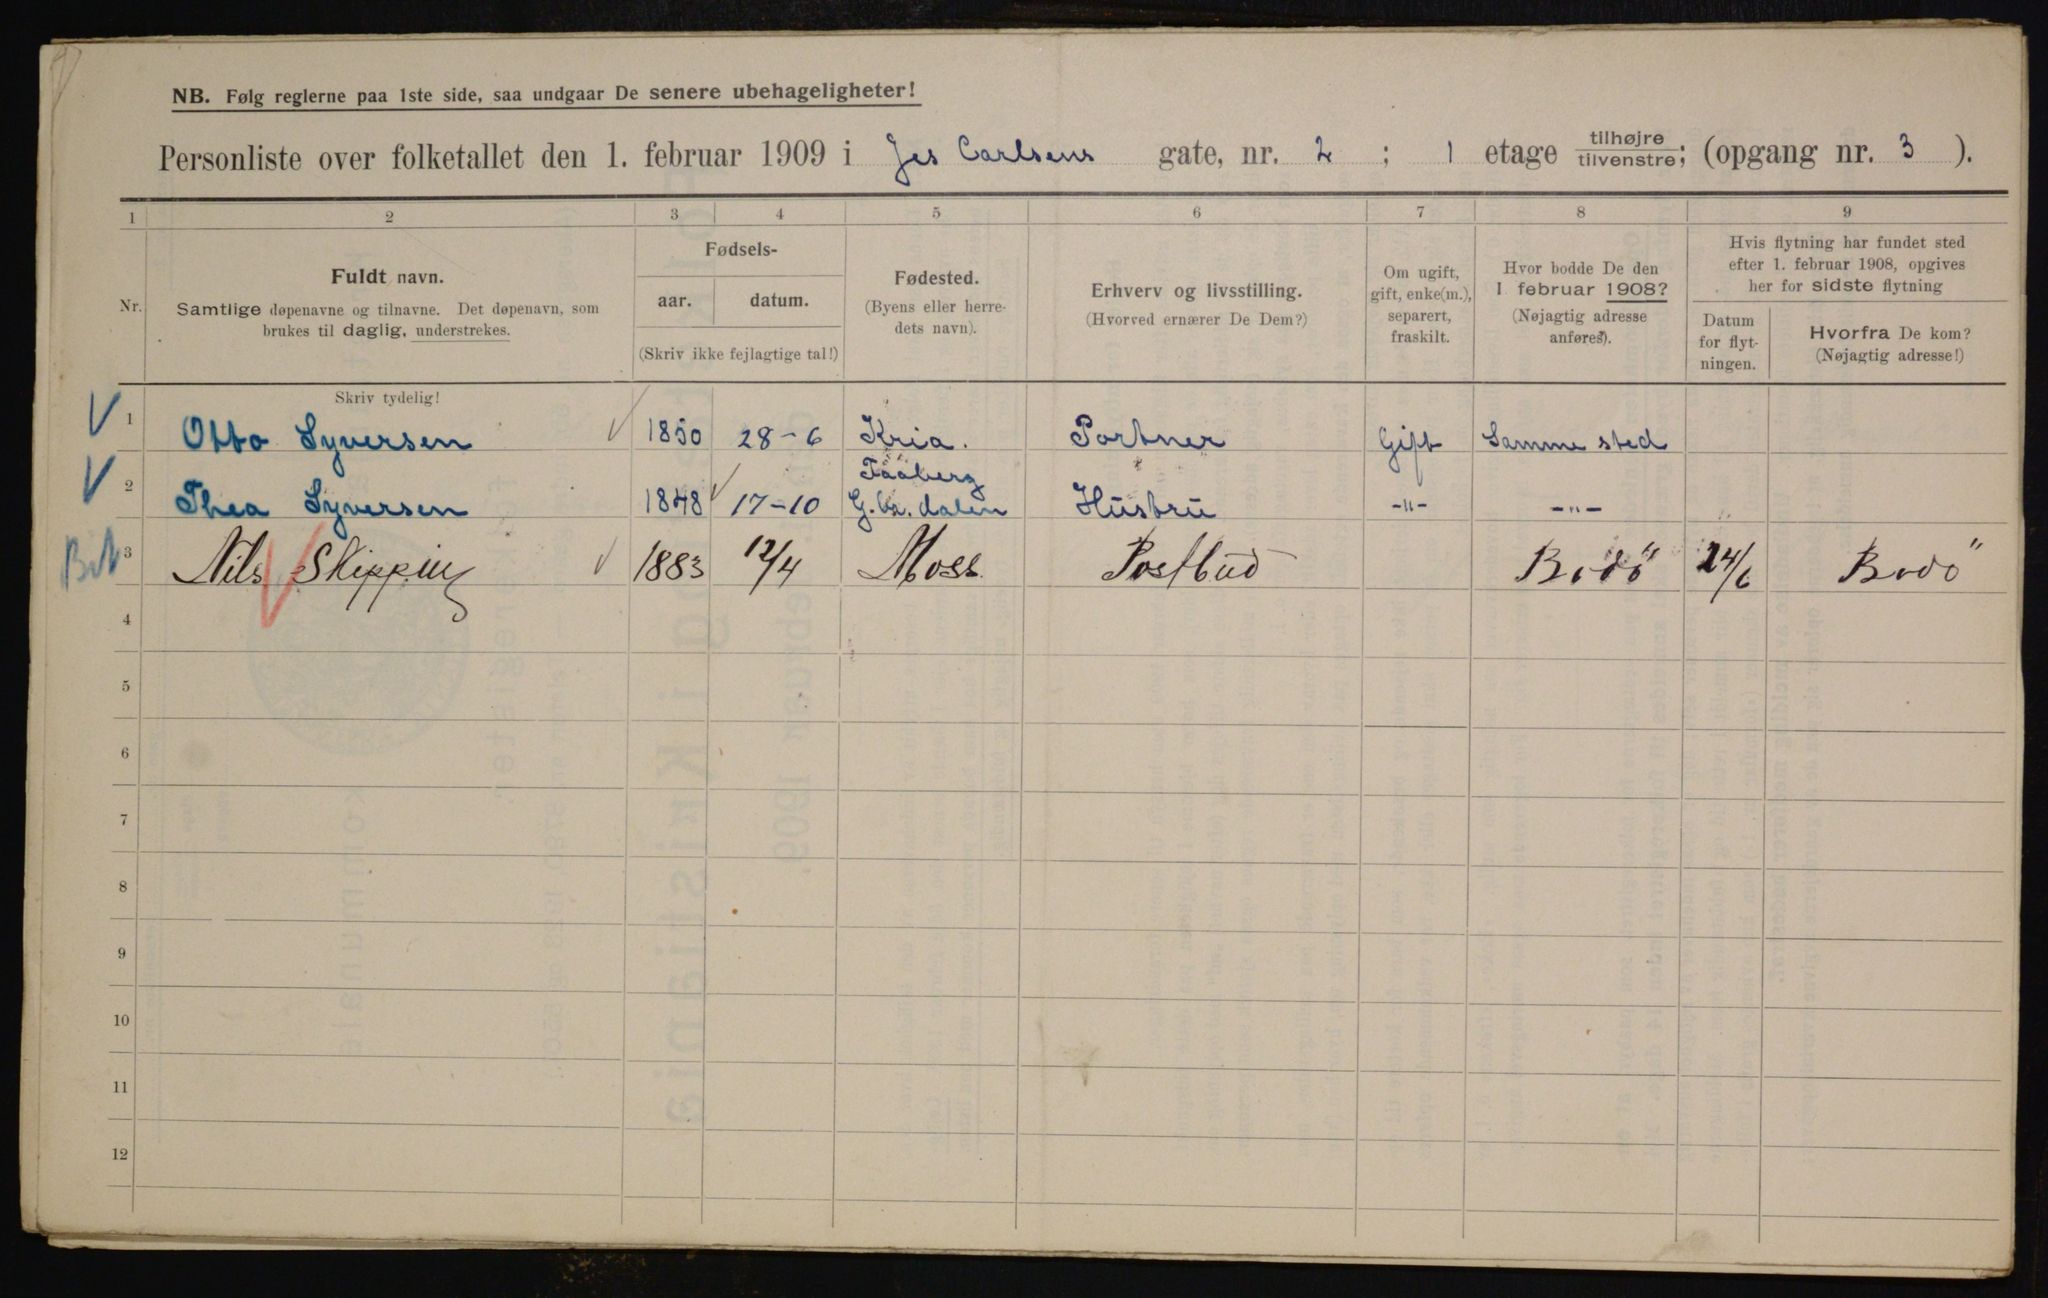 NB. Følg reglerne paa 1ste side, saa undgaar De senere ubehageligheter!
Personliste over folketallet den 1. februar 1909 i Jes Carlsens gate, nr. 2 ; 1 etage tilhøjre/tilvenstre; (opgang nr. 3 ).
1 2 3 4 5 6 7 8 9
Nr.
Fuldt navn.
Samtlige døpenavne og tilnavne. Det døpenavn, som
brukes til daglig, understrekes.
Fødsels-
aar. datum.
(Skriv ikke fejlagtige tal!)
Fødested.
(Byens eller herre-
dets navn).
Erhverv og livsstilling.
(Hvorved ernærer De Dem?)
Om ugift,
gift, enke(m.),
separert,
fraskilt.
Hvor bodde De den
1. februar 1908?
(Nøjagtig adresse
anføres).
Hvis flytning har fundet sted
efter 1. februar 1908, opgives
her for sidste flytning
Datum
for flyt-
ningen.
Hvorfra De kom?
(Nøjagtig adresse!)
Skriv tydelig!
1 Otto Syversen 1850 28-6 Kria. Portner Gift Samme sted
Faaberg
2 Thea Syversen 1848 17-10 G.br.dalen Hustru -"- -"-
3 Nils Skipping 1883 12/4 Moss Postbud Bodö 24/6 Bodö
4
5
6
7
8
9
10
11
12